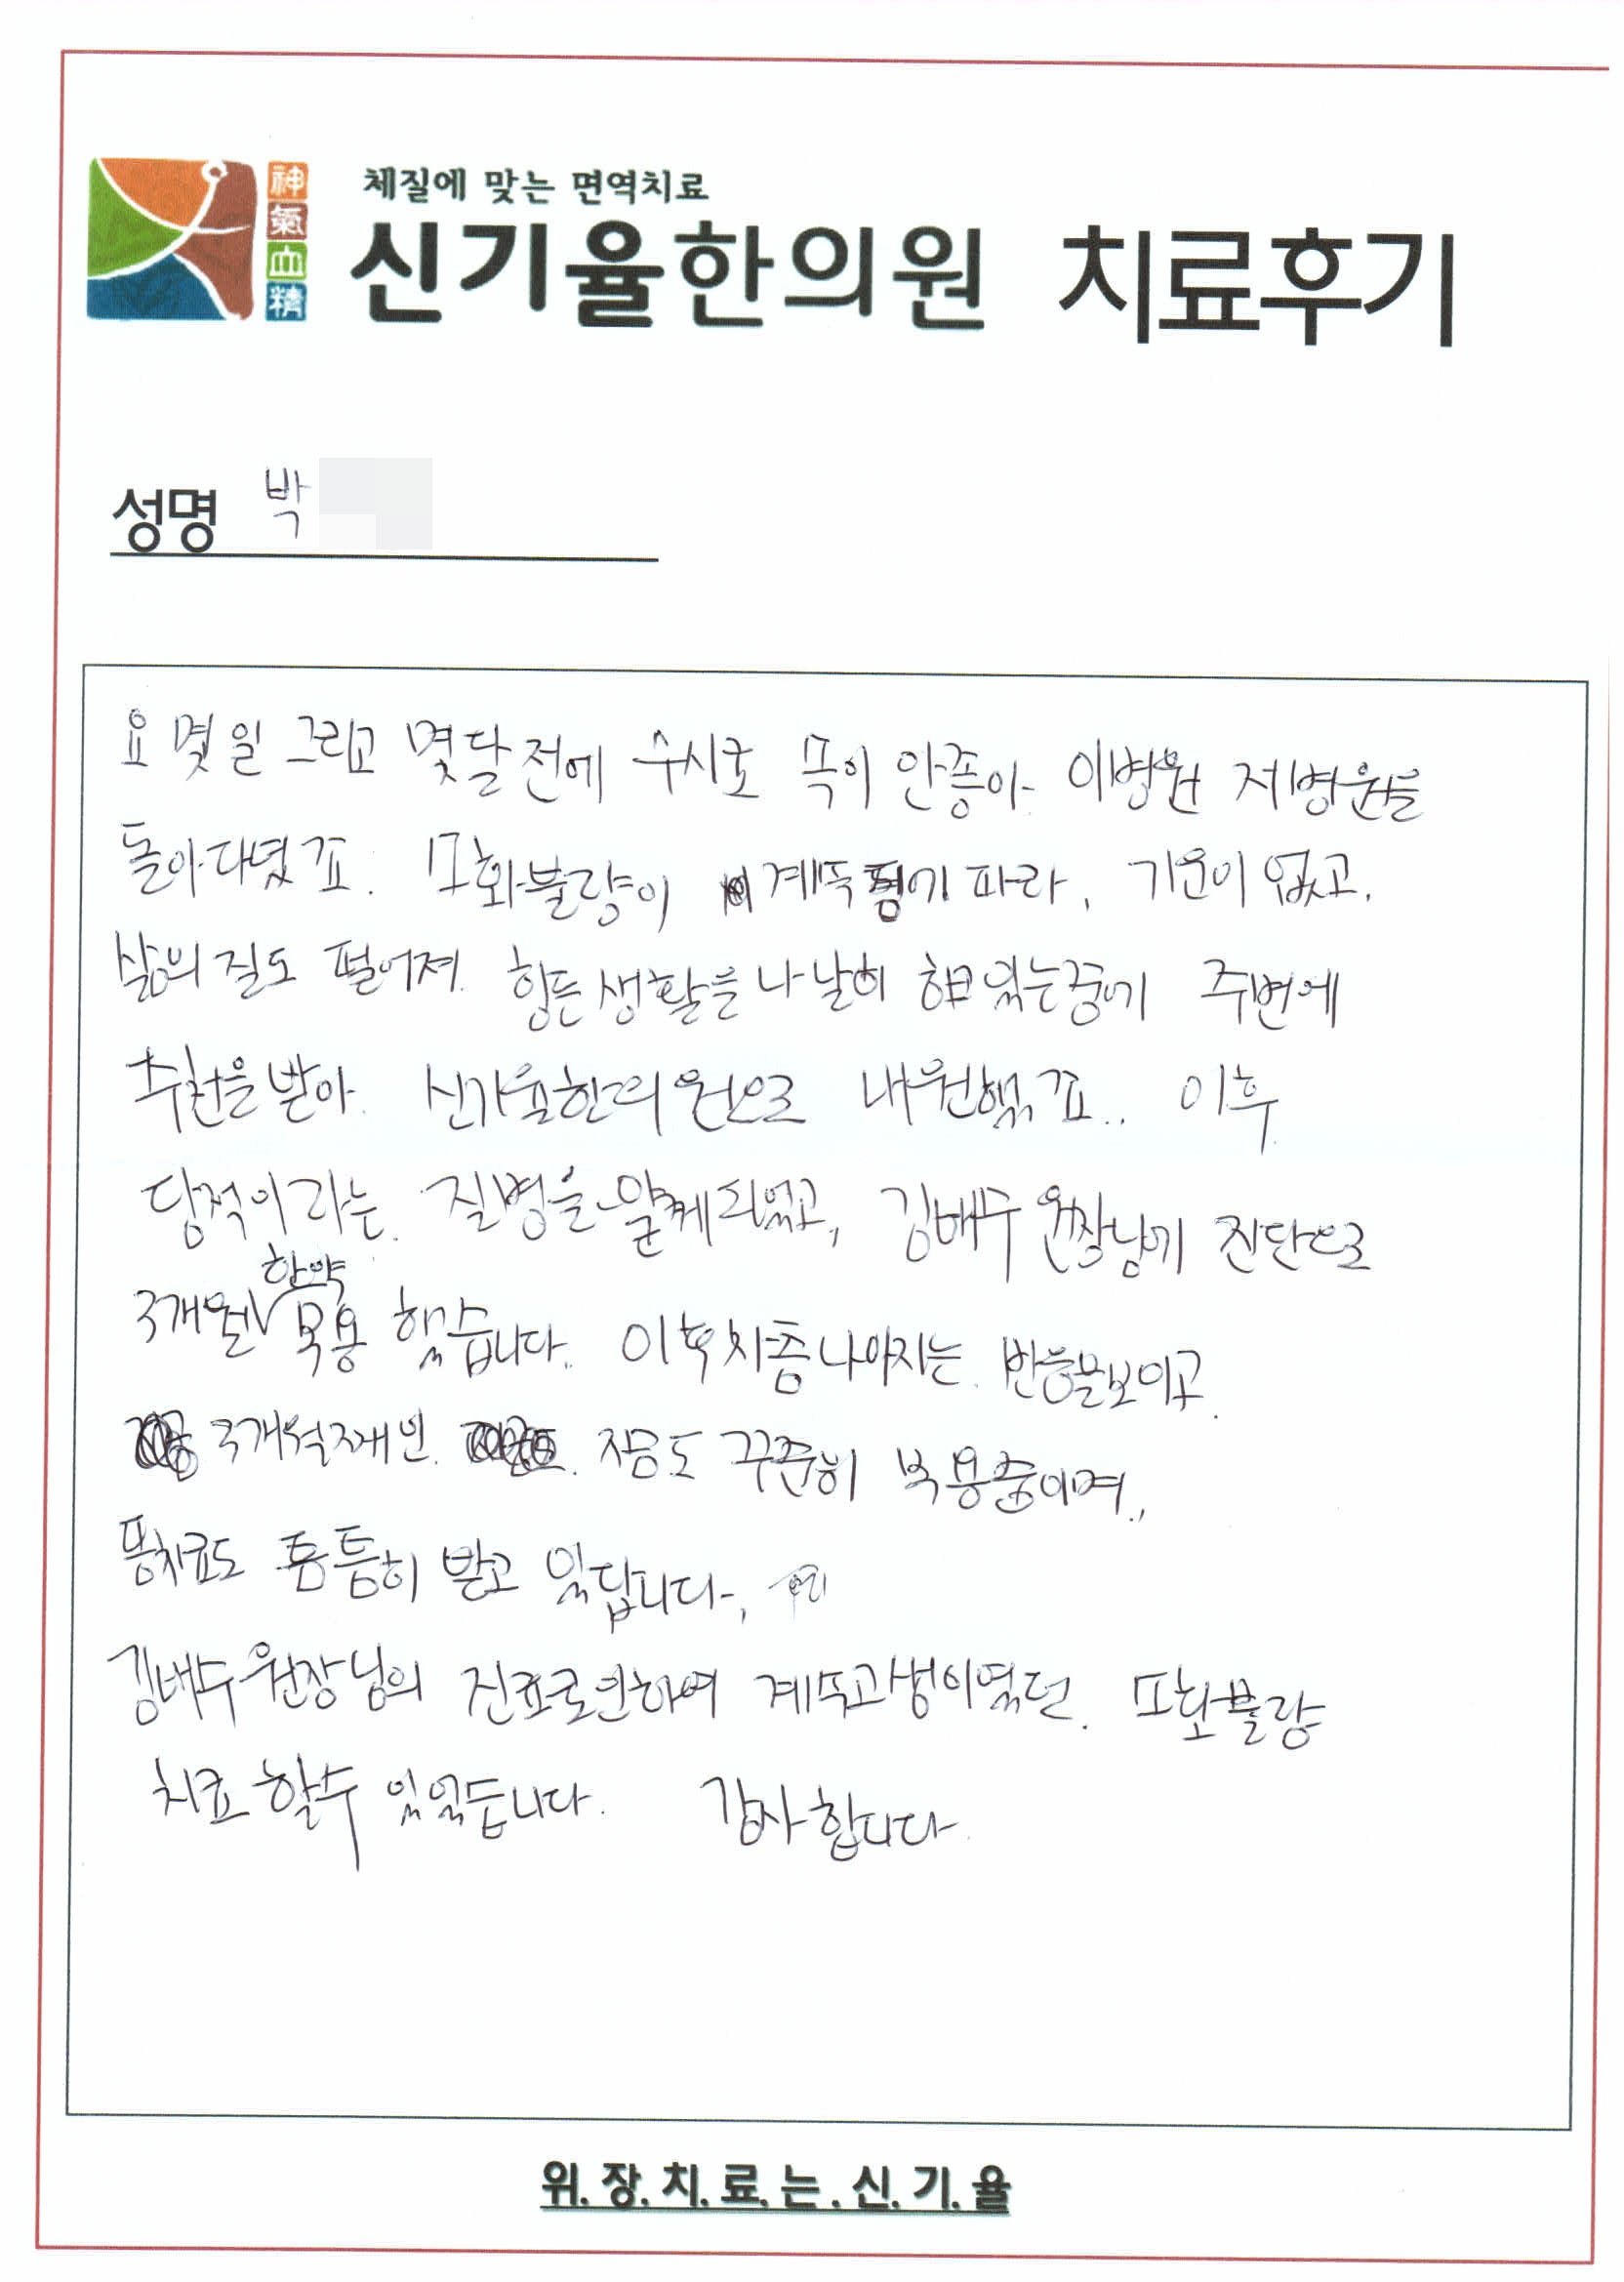 체질에 맞는 면역치료
神氣血精
신기율한의원 치료후기
성명 박
요 몇일 그리고 몇달전에 수시로 목이 안좋아 이병원 저병원을
돌아다녔구요. 소화불량이 계속 되기 따라, 기운이 없고,
삶의 질도 떨어져. 힘든 생활을 나날히 하고 있는중에 주변에
추천을 받아. 신기율한의원으로 내원했구요.. 이후
담적이라는. 질병을 알게되었고, 김배수 원장님에 진단으로
3개월 한약 복용 했습니다. 이후 차츰 나아지는 반응을보이고.
3개월째인. 지금도 꾸준히 복용중이며.,
치료도 틈틈히 받고 있답니다.,
김배수원장님의 진료로인하여 계속고생이였던. 소화불량
치료 할수 있었습니다. 감사합니다.
위.장.치.료.는.신.기.율